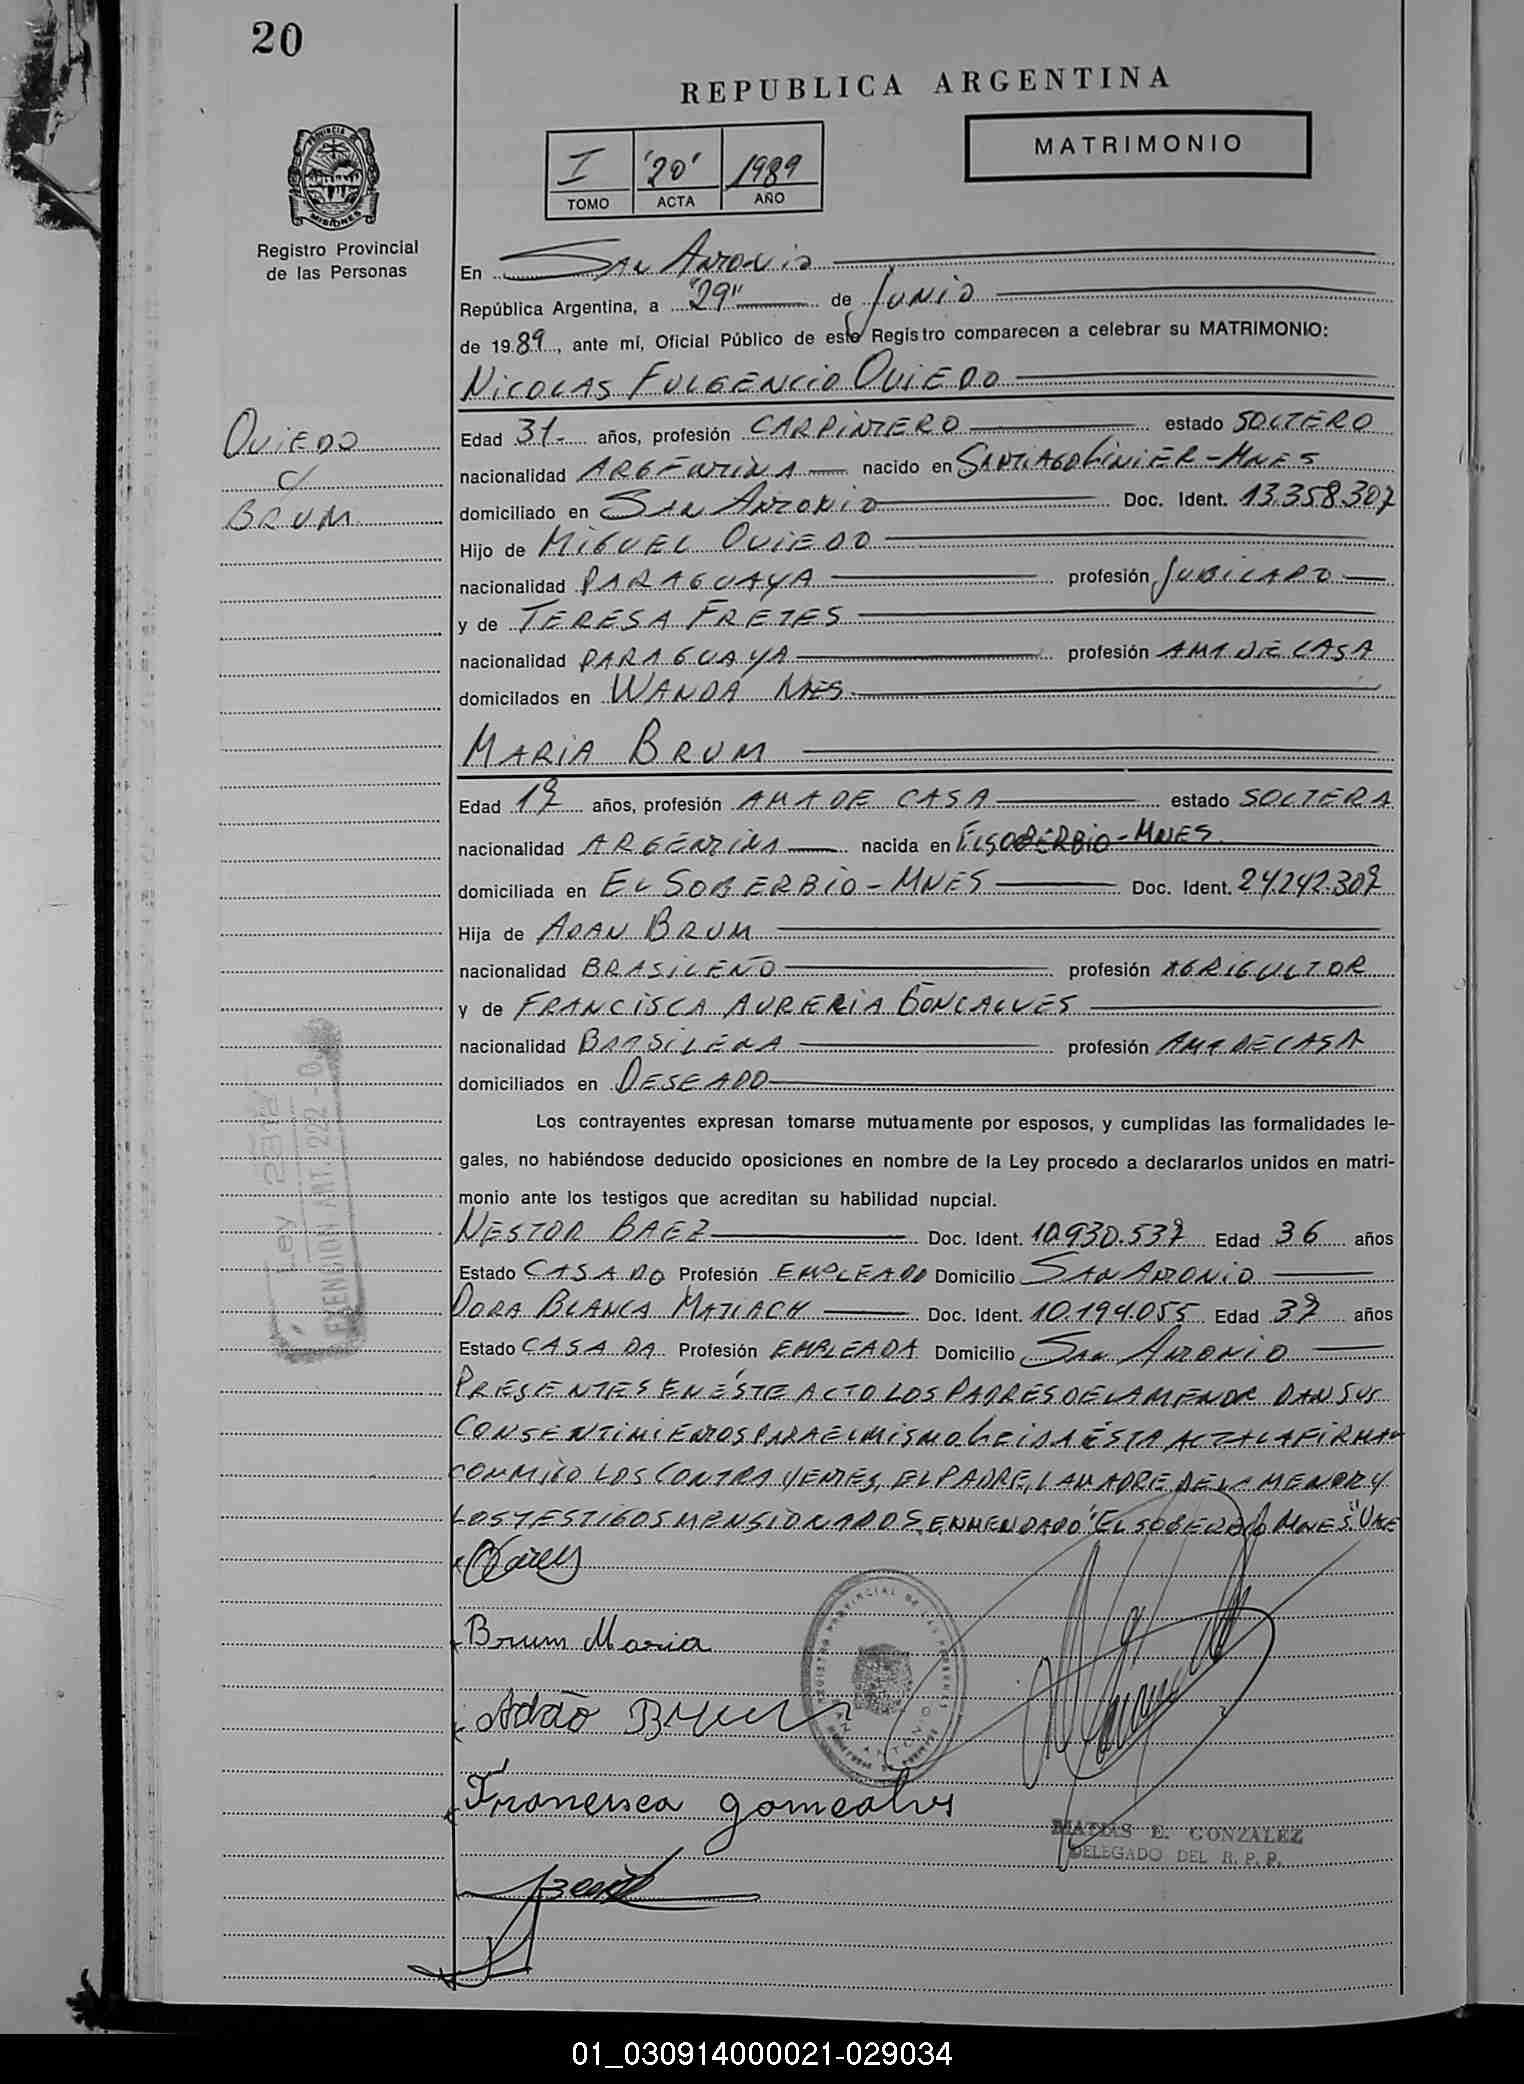 20
REPUBLICA ARGENTINA
MATRIMONIO
I '20' 1989
TOMO ACTA AÑO
PROVINCIA
MISIONES
Registro Provincial
de las Personas
En San Antonio
República Argentina, a "29" de Junio
de 1989, ante mí, Oficial Público de este Registro comparecen a celebrar su MATRIMONIO:
NICOLAS FULGENCIO OVIEDO
OVIEDO
c/
BRUM
Edad 31- años, profesión CARPINTERO estado SOLTERO
nacionalidad ARGENTINA nacido en SANTIAGO LINIER-MNES
domiciliado en SAN ANTONIO Doc. Ident. 13.358.307
Hijo de MIGUEL OVIEDO
nacionalidad PARAGUAYA profesión JUBILADO
y de TERESA FRETES
nacionalidad PARAGUAYA profesión AMA DE CASA
domicilados en WANDA MNES
MARIA BRUM
Edad años, profesión AMA DE CASA estado SOLTERA
nacionalidad ARGENTINA nacida en EL SOBERBIO-MNES
domiciliada en EL SOBERBIO-MNES Doc. Ident.
Hija de ADAN BRUM
nacionalidad BRASILEÑO profesión AGRICULTOR
y de FRANCISCA AURERIA GONCALVES
nacionalidad BRASILENA profesión AMA DE CASA
domiciliados en DESEADO
Los contrayentes expresan tomarse mutuamente por esposos, y cumplidas las formalidades le-
gales, no habiéndose deducido oposiciones en nombre de la Ley procedo a declararlos unidos en matri-
monio ante los testigos que acreditan su habilidad nupcial.
NESTOR BAEZ Doc. Ident. Edad 36 años
Estado CASADO Profesión EMPLEADO Domicilio SAN ANTONIO
DORA BLANCA MATIACH Doc. Ident. 10.194.055 Edad años
Estado CASADA Profesión EMPLEADA Domicilio SAN ANTONIO
PRESENTES EN ÉSTE ACTO LOS PADRES DE LA MENOR DAN SUS
CONSENTIMIENTOS PARA EL MISMO LEIDA ÉSTA ACTA LA FIRMAN
CONMIGO LOS CONTRAYENTES, EL PADRE, LA MADRE DE LA MENOR Y
LOS TESTIGOS MENSIONADOS. ENMENDADO "EL SOBERBIO MNES" VALE
Ley
EXENSION ART. 222
Brum Maria
Adão Brum
Francisca gomcalvs
REGISTRO PROVINCIAL DE LAS PERSONAS
SAN ANTONIO
MATIAS E. GONZALEZ
DELEGADO DEL R. P. P.
01_030914000021-029034